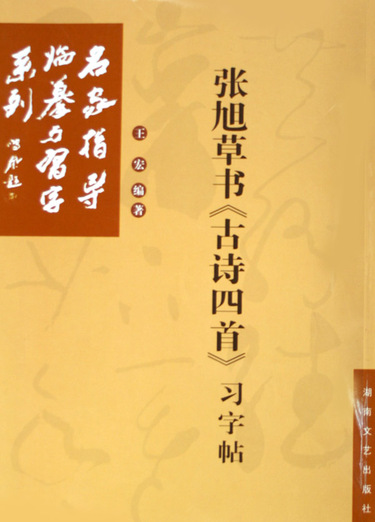 名家指导
临摹与习字
系列
张旭草书《古诗四首》习字帖
王宏编著
湖南文艺出版社